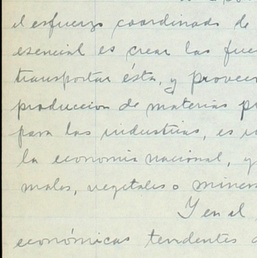 el esfuerzo coordinado de
esencial es crear las fue
transportar ésta, y proveer
produccion de materias p
para las industrias, es u
la economia nacional, y
males, vegetales o miner
Y en el
económicas tendentes a